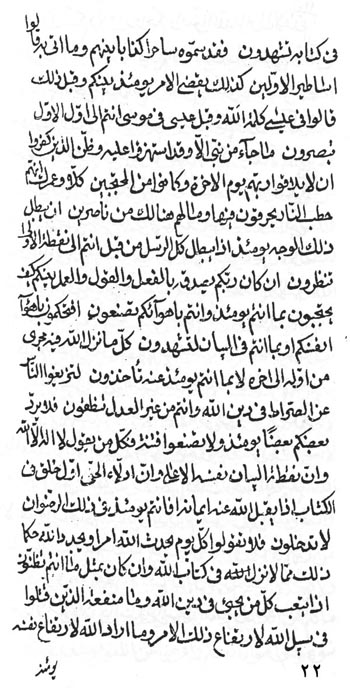 فى كتابه تشهدون فقد سموه ساحرا كذابا بينهم وما اتى به قالوا
اساطير الاولين كذلك يقضى الامر يومئذ بينكم وقبل ذلك
قالوا فى عيسى كلمة الله وقبل عيسى فى موسى انتم الى اول الاول
تبصرون ما جاءه من نبى الا وقد استهزؤا عليه وظن الذين كفروا
ان لا يلاقوا ربهم يوم الاخرة وكانوا من المحتجبين كلا وعزتك انهم
حطب النار يحرقون فيها وما لهم هنالك من ناصرين ان يبطل
ذلك الوجه يومئذ اذا يبطل كل الرسل من قبل انتم الى نقطة الاولى
تنظرون ان كان ربكم يصدقه بالفعل والقول والعمل بينكم كيف
يحتجبون بما انتم يومئذ وانتم باهوائكم تصنعون افتحكمون باهواء
انفسكم او بما انتم فى البيان لتشهدون كل ما نزل الله فيه يجرى
من اوله الى اخره لا بما انتم يومئذ عنه تأخذون لتزيغوا الناس
عن الصراط فى دين الله وانتم من غير العدل تنطقون فلا يرد
بعضكم بعضا يومئذ ولا يصنعوا فتنة وكل من يقول لا اله الا الله
وان نقطة البيان نفسه الاعلى وان اولاء الحى اول خلق فى
الكتاب اذا يقبل الله عنه ايمانه افانتم يومئذ فى ذلك الرضوان
لا تدخلون فلا تقولوا كل يوم يحدث الله امرا ويجدد الله حكما
ذلك مما لا نزل الله فى كتاب الله وان كان بمثل ما انتم تظنون
اذا يتعب كل من يجيئ فى دين الله وما منفعة الذين قتلوا
فى سبيل الله لارتفاع ذلك الامر وما اراد الله لارتفاع نفسه
يومئذ
٢٢